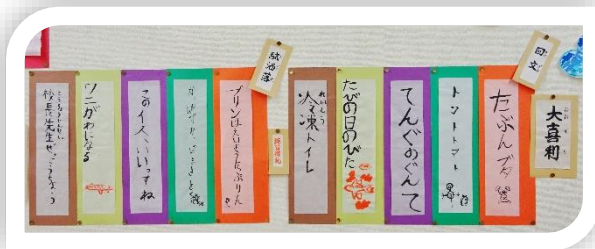 大喜利
回文
たぶんブタ
てんぐのぐんて
たびの日のびた
れいとう
冷凍トイレ
駄洒落
プリンはえいようたっぷりん
このイス、いいっすね
ワニがわになる
校長先生ぜっこうちょう